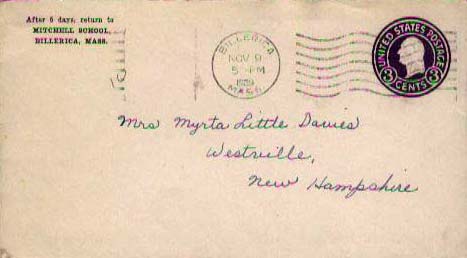 After 5 days, return to
MITCHELL SCHOOL,
BILLERICA, MASS.
BILLERICA
NOV 9
5-PM
MASS.
UNITED STATES POSTAGE
3 CENTS 3
Mrs Myrta Little Davies
Westville,
New Hampshire